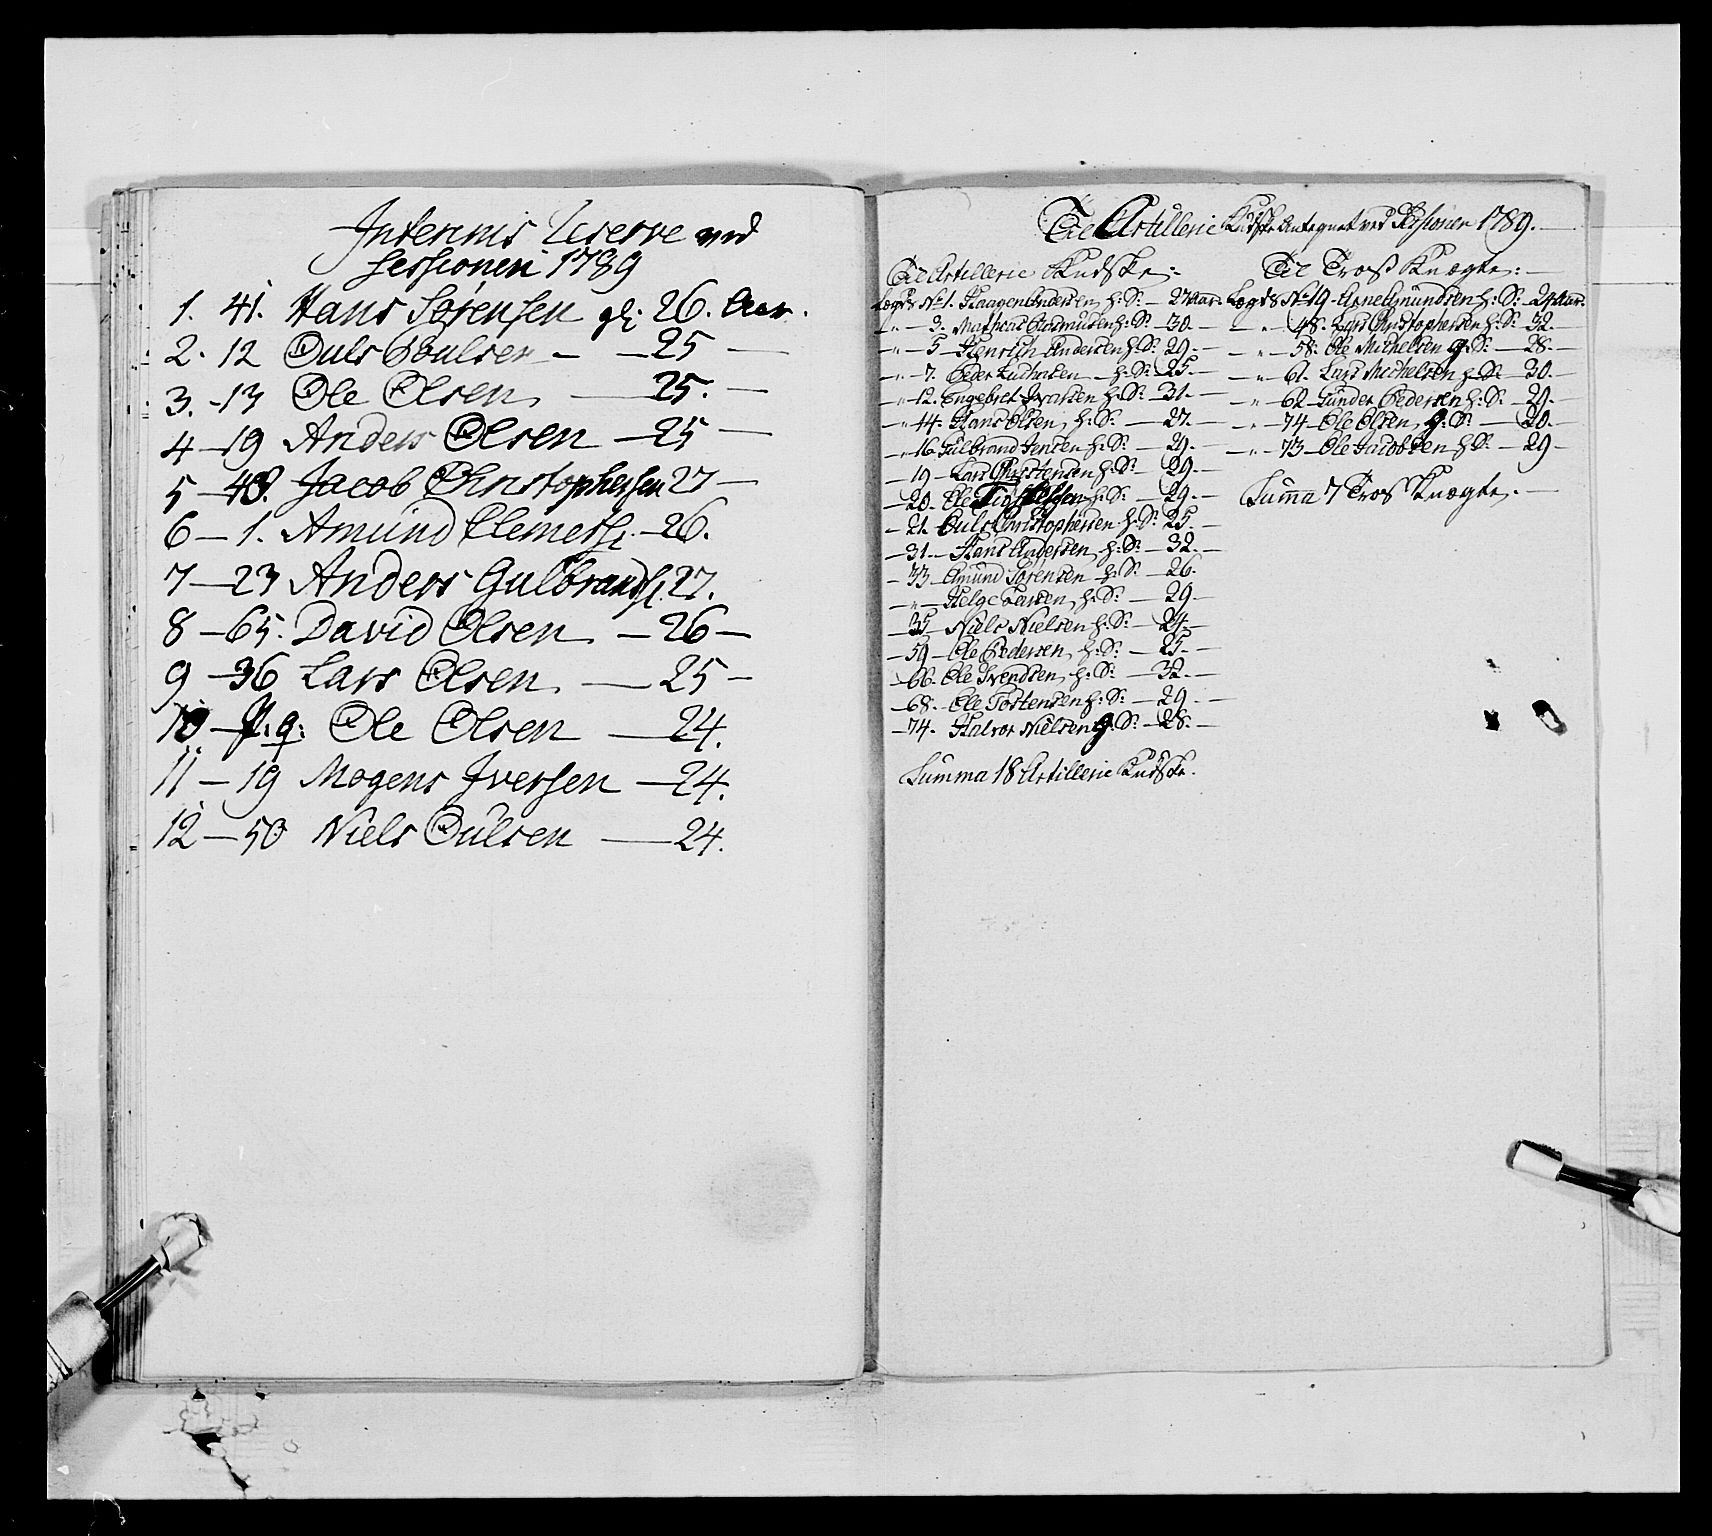 Interims Reserve ved
Sessionen 1789
1. 41. Hans Sørensen gl: 26. Aar.
2. 12 Ouls Poulsen - - 25 -
3. - 13 Ole Olsen - 25. -
4 - 19 Anders Olsen - 25 -
5 - 48. Jacob Christophersen 27 -
6 - 1. Amund Clemets: - 26.
7 - 23 Anders Gulbrands: 27.
8 - 65. David Olsen - 26 -
9 - 36 Lars Olsen - 25 -
10 - Ole Olsen - 24.
11 - 19 Mogens Iversen - 24.
12 - 50 Niels Oulsen - 24.
Til Artillerie Kudske Antegnet ved Sessionen 1789.
Til Artillerie Kudske:
Lægds No 1. Haagen Andersen h: S: - 27 Aar.
- " - 3. Mathias Rasmusen h: S: - 30. -
- " - 5 - Henrich Andersen h: S: 29. -
- " - 7. Peder h: S: 25. -
- " - 12. Engebret Ivarsen h: S: - 31. -
- " - 14. Hans Olsen h: S: - 27. -
- " - 16. Gulbrand Jensen h: S: - 29. -
- 19 - Lars Christensen h: S: - 29. -
- 20. Ole h: S: - 29. -
- 21. Ouls Christophersen h: S: 25. -
- 31. - Hans Andersen h: S: - 32. -
- 33 - Amund Sørensen h: S: - 26. -
- " - Helge Larsen h: S: - 29 -
- 35 - Niels Nielsen h: S: - 24. -
- 59 - Ole Pedersen h: S: - 25. -
- 66. Ole Svendsen h: S: - 32. -
- 68. Ole Tostensen h: S: - 29. -
- 74. Halvor Nielsen g: S: - 28. -
Summa 18 Artillerie Kudske.
Til Tross Knægte:
Lægds No 19 - Arne Amundsen h: S: - 24 Aar.
- " - 48. Lars Christophersen h: S: 32. -
- " - 58. Ole Michelsen g: S: - 28. -
- " - 61. Lars Michelsen h: S: - 30. -
- " - 62. Gunder Pedersen h: S: - 29. -
- " - 74 - Ole Olsen g: S: - 20. -
- " - 73 - Ole Jacobsen h: S: - 29 -
Summa 7 Tross Knægte. -